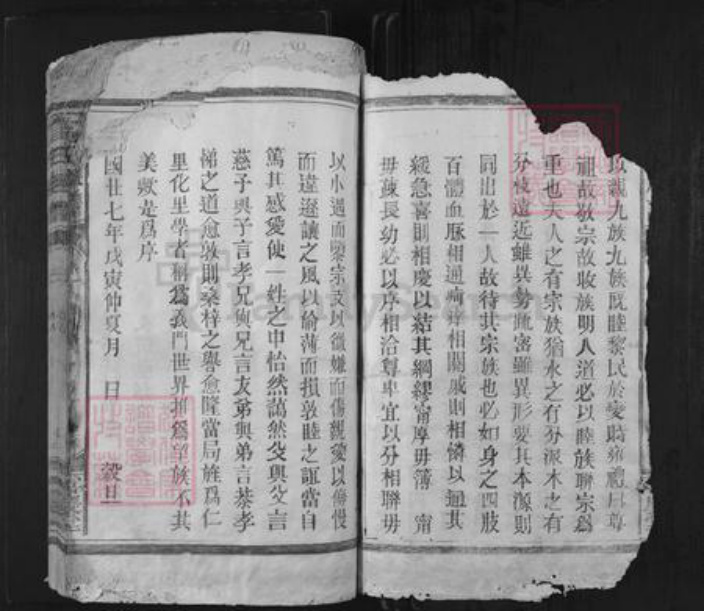 以親九族九族既睦黎民於變時雍禮曰尊
祖故敬宗故收族明人道必以睦族聯宗為
重也夫人之有宗族猶水之有分派木之有
分枝遠近雖異勢疏密雖異形要其本源則
同出於一人故待其宗族也必如身之四肢
百體血脈相通疴癢相關戚則相憐以通其
緩急喜則相慶以結其綢繆甯厚毋簿 甯
毋疎長幼必以序相洽尊卑宜以分相聯毋
以小過而釁宗支以微嫌而傷親愛以傲慢
而違遜讓之風以偷薄而損敦睦之誼當自
篤其感愛使一姓之中怡然藹然父與父言
慈子與子言孝兄與兄言友弟與弟言恭孝
悌之道愈敦則桑梓之譽愈隆當局旌為仁
里化里學者稱為義門世界推為望族不其
美歟是為序
國廿七年戊寅仲夏月 日 穀旦